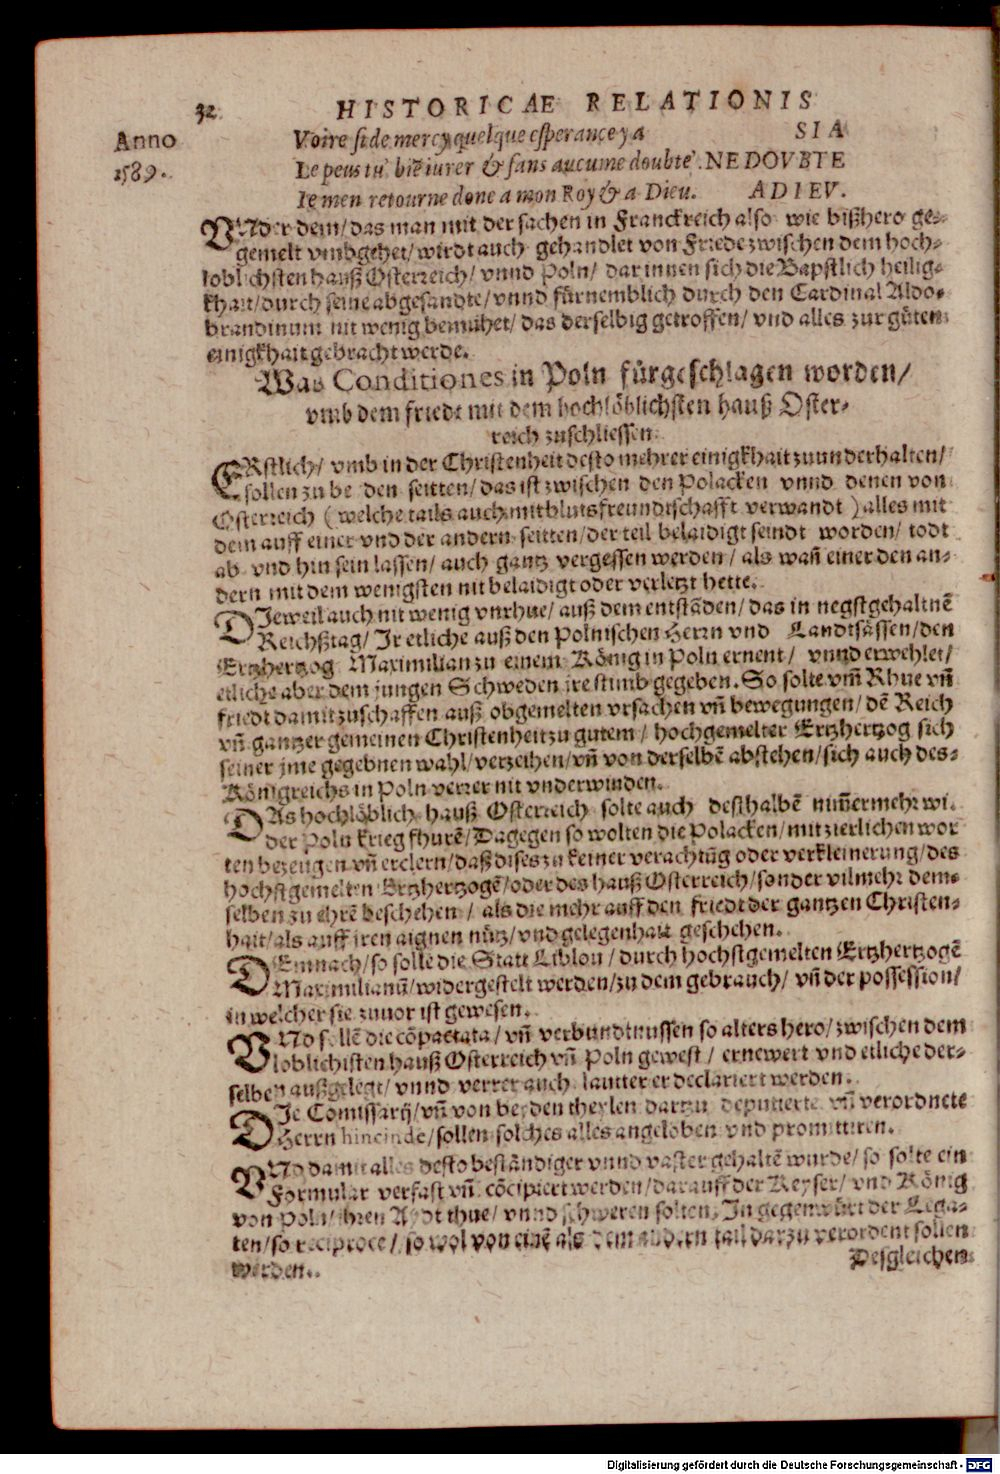 32 HISTORICAE RELATIONIS
Anno
1589.
Voire si de mercy quelque esperance y a SIA
Le peus tu biẽ iurer & sans aucume doubte. NE DOVBTE
Ie men retourne done a mon Roy & a Dieu. ADIEV.
VNder dem/ das man mit der sachen in Franckreich also wie bißhero ge-
gemelt vmbgehet/ wirdt auch gehandlet von Friede zwischen dem hoch-
loblichsten hauß Osterreich/ vnnd Poln/ darinnen sich die Bapstlich heilig-
khait/ durch seine abgesandte/ vnnd fürnemblich durch den Cardinal Aldo-
brandinum nit wenig bemühet/ das derselbig getroffen/ vnd alles zur güten
einigkhait gebracht werde.
Was Conditiones in Poln fürgeschlagen worden/
vmb dem friede mit dem hochlöblichsten hauß Oster-
reich zuschliessen.
ERstlich/ vmb in der Christenheit desto mehrer einigkhait zuunderhalten/
sollen zu be den seitten/ das ist zwischen den Polacken vnnd denen von
Osterreich (welche tails auch mit blutsfreundtschafft verwandt) alles mit
dem auff einer vnd der andern seitten/ der teil belaidigt seindt worden/ todt
ab vnd hin sein lassen/ auch gantz vergessen werden/ als wañ einer den an-
dern mit dem wenigsten nit belaidigt oder verletzt hette.
DIeweil auch nit wenig vnrhue/ auß dem entstãden/ das in negstgehaltnẽ
Reichßtag/ Ir etliche auß den Polnischen Herrn vnd Landtsässen/ den
Ertzhertzog Maximilian zu einem König in Poln ernent/ vnnd erwehlet/
etliche aber dem jungen Schweden ire stimb gegeben. So solte vm̃ Rhue vñ
friedt damit zuschaffen auß obgemelten vrsachen vñ bewegungen/ dẽ Reich
vñ gantzer gemeinen Christenheit zu gutem/ hochgemelter Ertzhertzog sich
seiner jme gegebnen wahl/ verzeihen/ vñ von derselbẽ abstehen/ sich auch des-
Königreichs in Poln verrer nit vnderwinden.
DAs hochlöblich hauß Osterreich solte auch desthalbẽ nim̃ermehr wi-
der Poln krieg fhurẽ/ Dagegen so wolten die Polacken/ mit zierlichen wor
ten bezeugen vñ erclern/ daß dises zu keiner verachtũg oder verkleinerung/ des
hochstgemelten Ertzhertzogẽ/ oder des hauß Osterreich/ sonder vilmehr dem-
selben zu ehrẽ beschehen/ als die mehr auff den friedt der gantzen Christen-
hait/ als auff iren aignen nütz/ vnd gelegenhait geschehen.
DEmnach/ so solle die Statt Liblou/ durch hochstgemelten Ertzhertzogẽ
Maximilianũ/ widergestelt werden/ zu dem gebrauch/ vñ der possession/
in welcher sie zuuor ist gewesen.
VNd sollẽ die cõpactata/ vñ verbundtnussen so alters hero/ zwischen dem
loblichisten hauß Osterreich vñ Poln gewest/ ernewert vnd etliche der-
selben außgelegt/ vnnd verrer auch lautter er declariert werden.
DIe Comissarij/ vñ von beyden theylen dartzu deputierte vñ verordnete
Herrn hincinde/ sollen solches alles angeloben vnd promitturen.
VNd damit alles desto beständiger vnnd vaster gehaltẽ wurde/ so solte ein
Formular verfast vñ cõcipiert werden/ darauff der Keyser/ vnd König
von Poln/ ihren Aydt thue/ vnnd schweren solten. In gegenwürt der Lega-
ten/ so reciproce/ so wol von einẽ als dem andern tail darzu verordent sollen
werden. Desgleichen
Digitalisierung gefördert durch die Deutsche Forschungsgemeinschaft - DFG